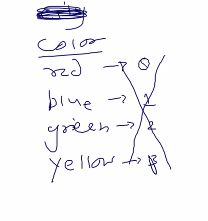 color
red → 0
blue → 1
green → 2
yellow → 3